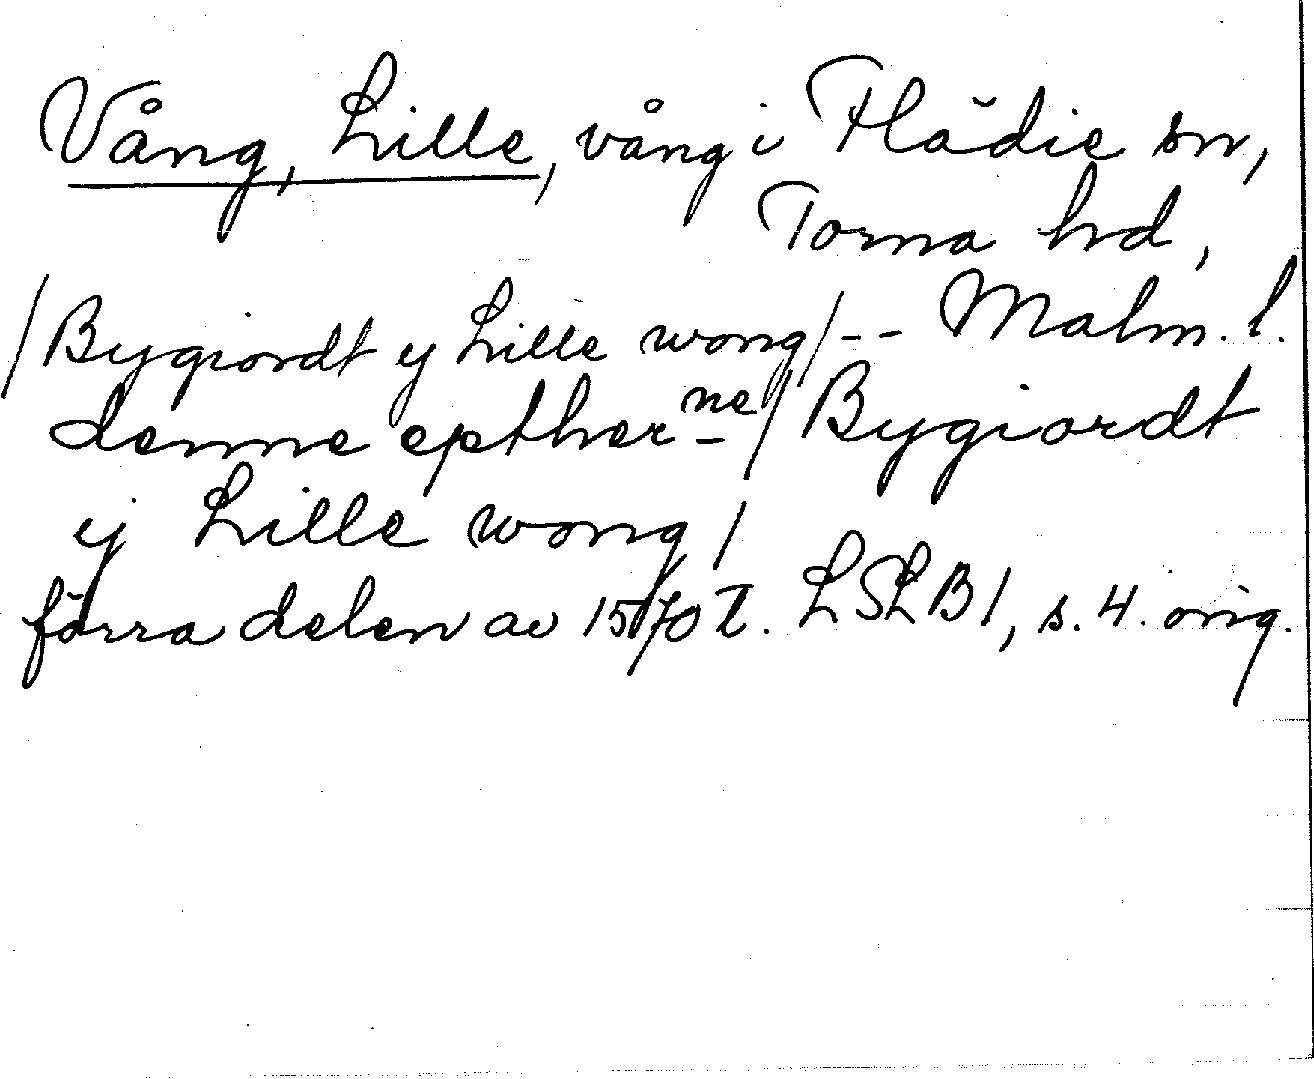 Vång, Lille, vång i Flädie sn,
Torna hd,
/Bygiordt ij Lille wong/-- Malm. l.
denne epther-ne/Bygiordt
ij Lille wong/
förra delen av 1570 t. LSLB1, s. 4. orig.